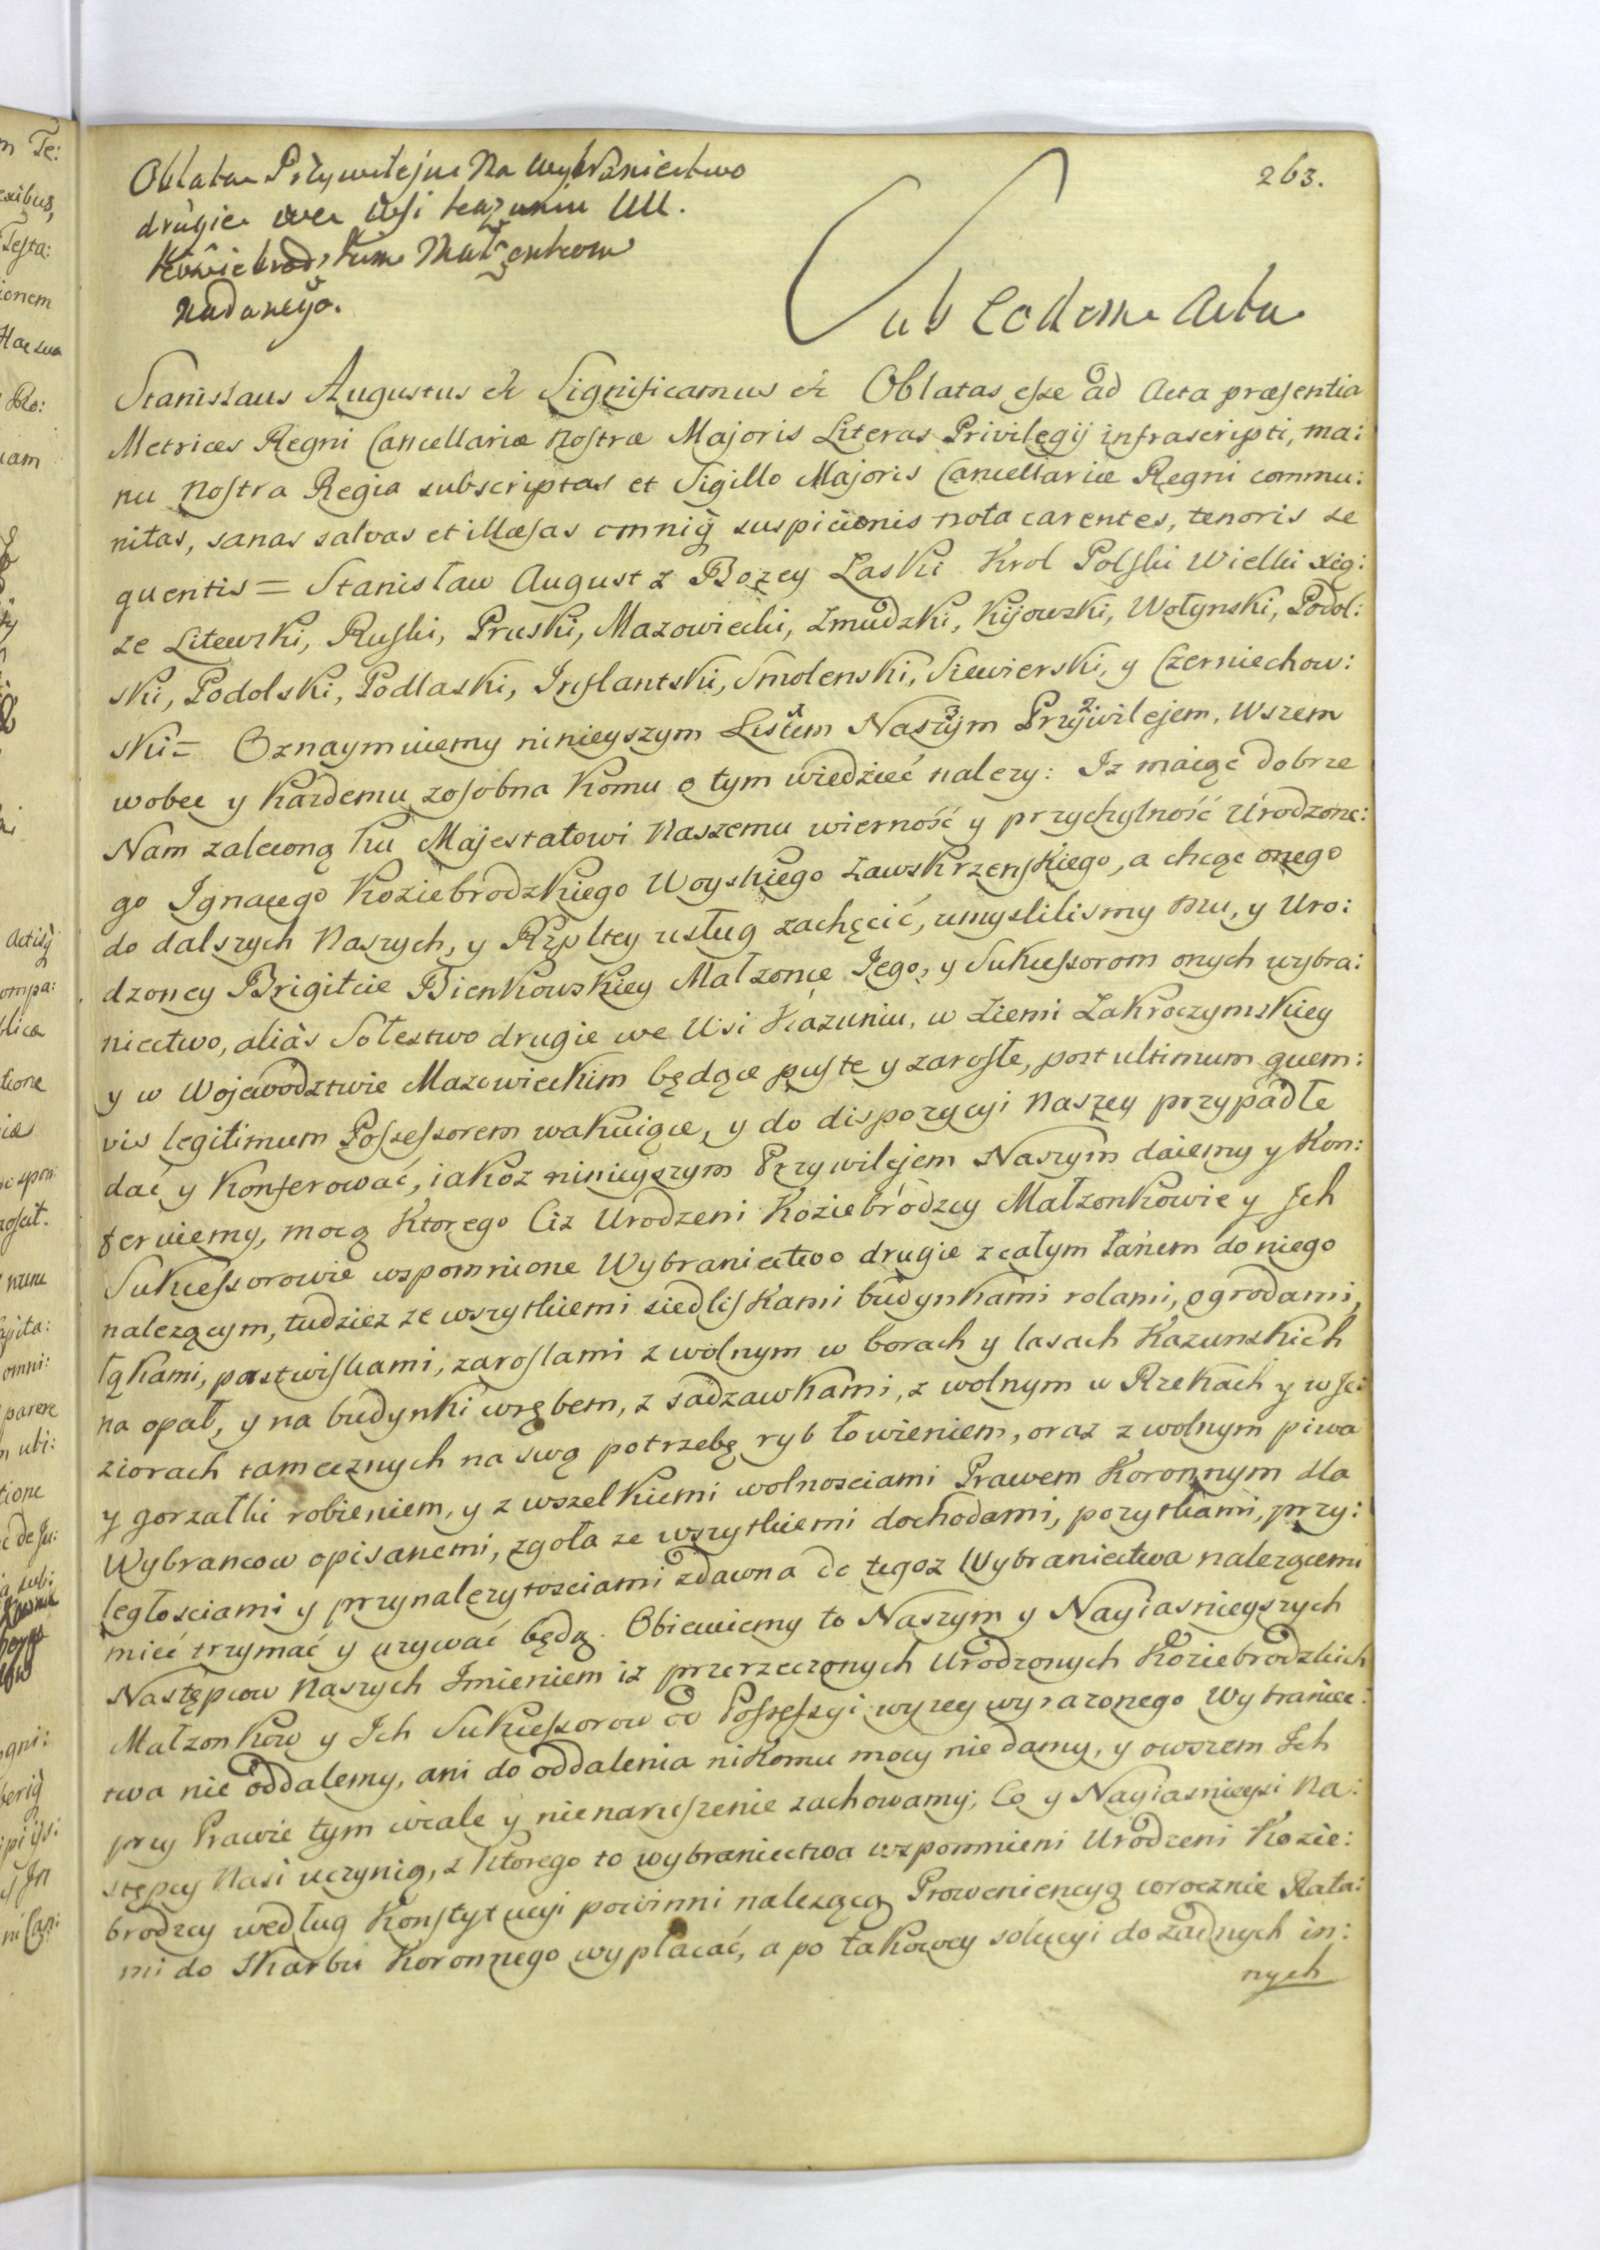 263.
Oblata Przywileju na Wybraniectwo
drugie we Wsi Kazuniu UU.
Koziebrodzkim Małżonkom
nadanego.
Sub Eodem Actu
Stanislaus Augustus etc Significamus etc Oblatas esse ad Acta præsentia
Metrices Regni Cancellariæ nostræ Majoris Literas Privilegij infrascripti, ma:
nu nostra Regia subscriptas et Sigillo Majoris Cancellariæ Regni commu:
nitas, sanas salvas et illæsas omniq suspicionis nota carentes, tenoris se
quentis = Stanisław August z Bozey Łaski Krol Polski Wielki Xią:
ze Litewski, Ruski, Pruski, Mazowiecki, Zmudzki, Kijowski, Wołynski, Podol:
ski, Podolski, Podlaski, Inflantski, Smolenski, Siewierski, y Czerniechow:
ski = Oznaymuiemy ninieyszym Listem Naszym Przywilejem, Wszem
wobec y Kazdemu zosobna Komu o tym wiedzieć nalezy: Iz maiąc dobrze
Nam zaleconą ku Majestatowi Naszemu wierność y przychylność Urodzone:
go Ignacego Koziebrodzkiego Woyskiego Zawskrzenskiego, a chcąc onego
do dalszych Naszych, y Rzpltey usług zachęcić, umyslilismy mu, y Uro:
dzoney Brigitcie Bienkowskiey Małzonce Jego, y Sukcessorom onych wybra:
niectwo, aliàs Sołestwo drugie we Wsi Kazuniu, w Ziemi Zakroczymskiey
y w Wojewodztwie Mazowieckim będące puste y zarosłe, post ultimum quem:
vis legitimum Possessorem wakuiące, y do dispozycyi Naszey przypadłe
dać y Konferować, iakoż ninieyszym Przywilejem Naszym daiemy y Kon:
feruiemy, mocą Ktorego Ciz Urodzeni Koziebrodzcy Małzonkowie y Ich
Sukcessorowie wspomnione Wybraniectwo drugie z całym łanem do niego
nalezącym, tudziez ze wszytkiemi siedliskami budynkami rolami, ogrodami,
łąkami, pastwiskami, zaroslami z wolnym w borach y lasach Kazunskich
na opał, y na budynki wrębem, z sadzawkami, z wolnym w Rzekach y w Je:
ziorach tamecznych na swą potrzebę ryb łowieniem, oraz z wolnym piwa
y gorzałki robieniem, y z wszelkiemi wolnosciami Prawem Koronnym dla
Wybrancow opisanemi, zgoła ze wszytkiemi dochodami, pozytkami, przy:
ległosciami y przynalezytosciami zdawna do tegoz Wybraniectwa nalezącemi
mieć trzymać y uzywać będą. Obiecuiemy to Naszym y Nayiasnieyszych
Następcow Naszych Imieniem iz przerzeczonych Urodzonych Koziebrodzkich
Małzonkow y Ich Sukcessorow od Possessyi wyzey wyrazonego Wybraniec:
twa nie oddalemy, ani do oddalenia nikomu mocy nie damy, y owszem Ich
przy Prawie tym wcale y nienaruszenie zachowamy; Co y Nayiasnieysi Na:
stępcy Nasi uczynią, z Ktorego to wybraniectwa wspomnieni Urodzeni Kozie:
brodzcy według Konstytucyi powinni nalezącą Proweniencyą corocznie Rata:
mi do Skarbu Koronnego wypłacać, a po takowey solucyi do zadnych in:
nych